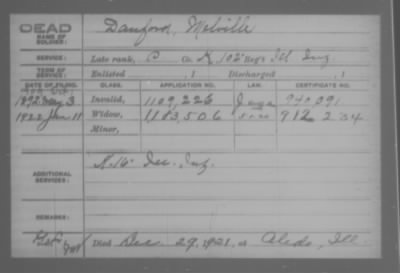 DEAD
NAME OF SOLDIER: Danford, Melville
SERVICE: Late rank, P Co. K, 102" Reg't Ill Inf.
TERM OF SERVICE: Enlisted , 1 Discharged , 1
DATE OF FILING. CLASS. APPLICATION NO. LAW. CERTIFICATE NO.
1892 May 3 Invalid, 1109,226
1922 Jan 11 Widow, 1183,506 912 234
Minor,
ADDITIONAL SERVICES: K-16"
REMARKS:
Died Dec 29, 1921, at Aledo, Ill.